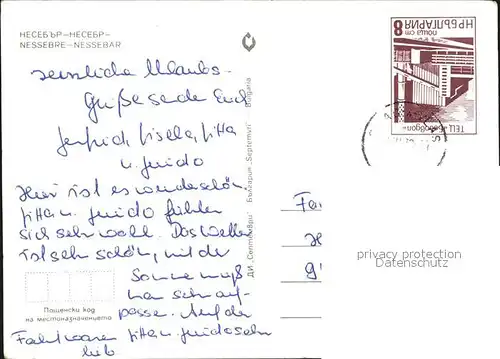 НЕСЕБЪР–НЕСЕБР–
NESSEBRE–NESSEBAR
Herzliche Urlaubs-
Grüße sende Euch
Gisela, Jitta
u. Guido
Hier ist es wunderschön
Jitta u. Guido fühlen
sich sehr wohl. Das Wetter
ist sehr schön, mit der
Sonne muß
man sehr auf-
passen. Auf der
Fahrt waren Jitta u. Guido sehr
lieb
Пощенски код
на местоназначението
ДИ „Септември" България "Septemvri" Bulgaria
НР БЪЛГАРИЯ 8
поща ст
ТЕЦ „Бобовдол"
Fa
H
9
privacy protection
Datenschutz